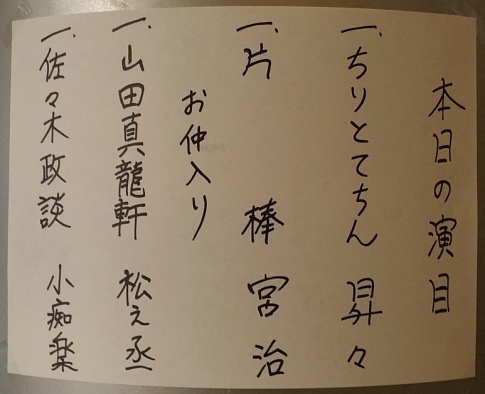 本日の演目
一、ちりとてちん 昇々
一、片棒 宮治
お仲入り
一、山田真龍軒 松之丞
一、佐々木政談 小痴楽